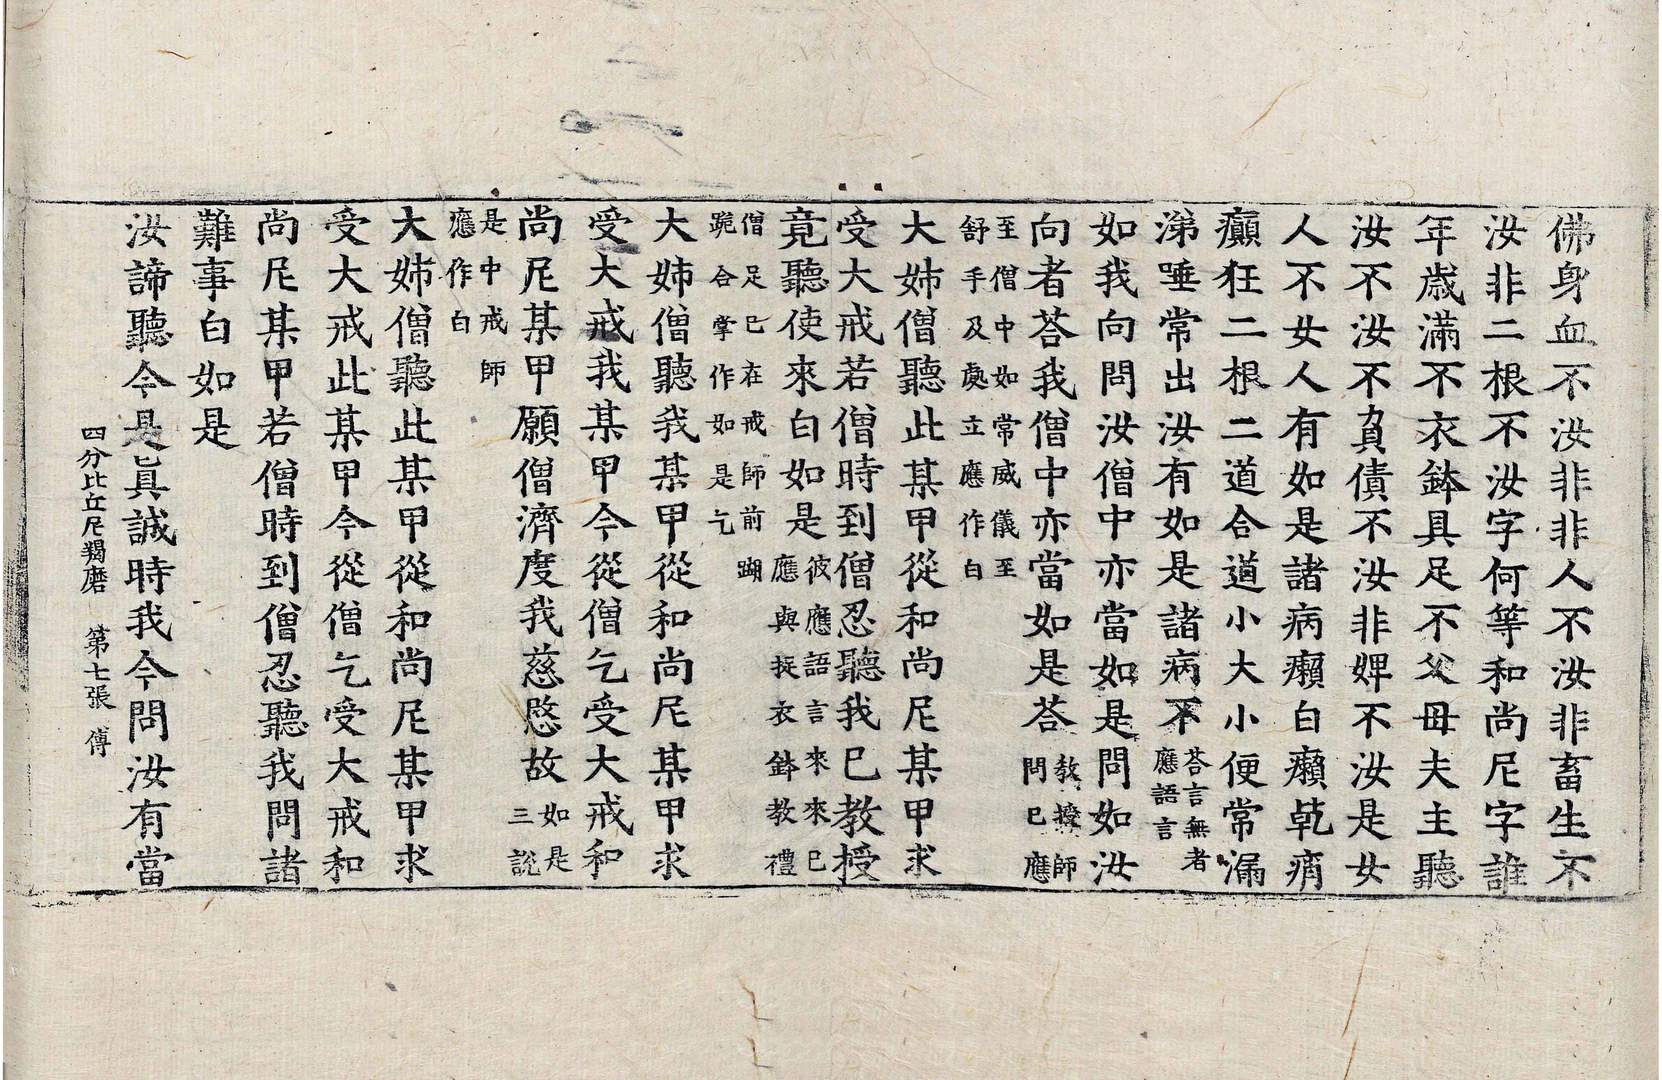 佛身血不汝非非人不汝非畜生不
汝非二根不汝字何等和尚尼字誰
年歲滿不衣鉢具足不父母夫主聽
汝不汝不負債不汝非婢不汝是女
人不女人有如是諸病癩白癩乾痟
癲狂二根二道合道小大小便常漏
涕唾常出汝有如是諸病不荅言無者
應語言
如我向問汝僧中亦當如是問如汝
向者荅我僧中亦當如是荅教授師
問已應
至僧中如常威儀至
舒手及處立應作白
大姊僧聽此某甲從和尚尼某甲求
受大戒若僧時到僧忍聽我已教授
竟聽使來白如是彼應語言來來已
應與捉衣鉢教禮
僧足已在戒師前𨁝
跪合掌作如是乞
大姊僧聽我某甲從和尚尼某甲求
受大戒我某甲今從僧乞受大戒和
尚尼某甲願僧濟度我慈愍故如是
三說
是中戒師
應作白
大姊僧聽此某甲從和尚尼某甲求
受大戒此某甲今從僧乞受大戒和
尚尼某甲若僧時到僧忍聽我問諸
難事白如是
汝諦聽今是眞誠時我今問汝有當
四分比丘尼羯磨 第七張 傅